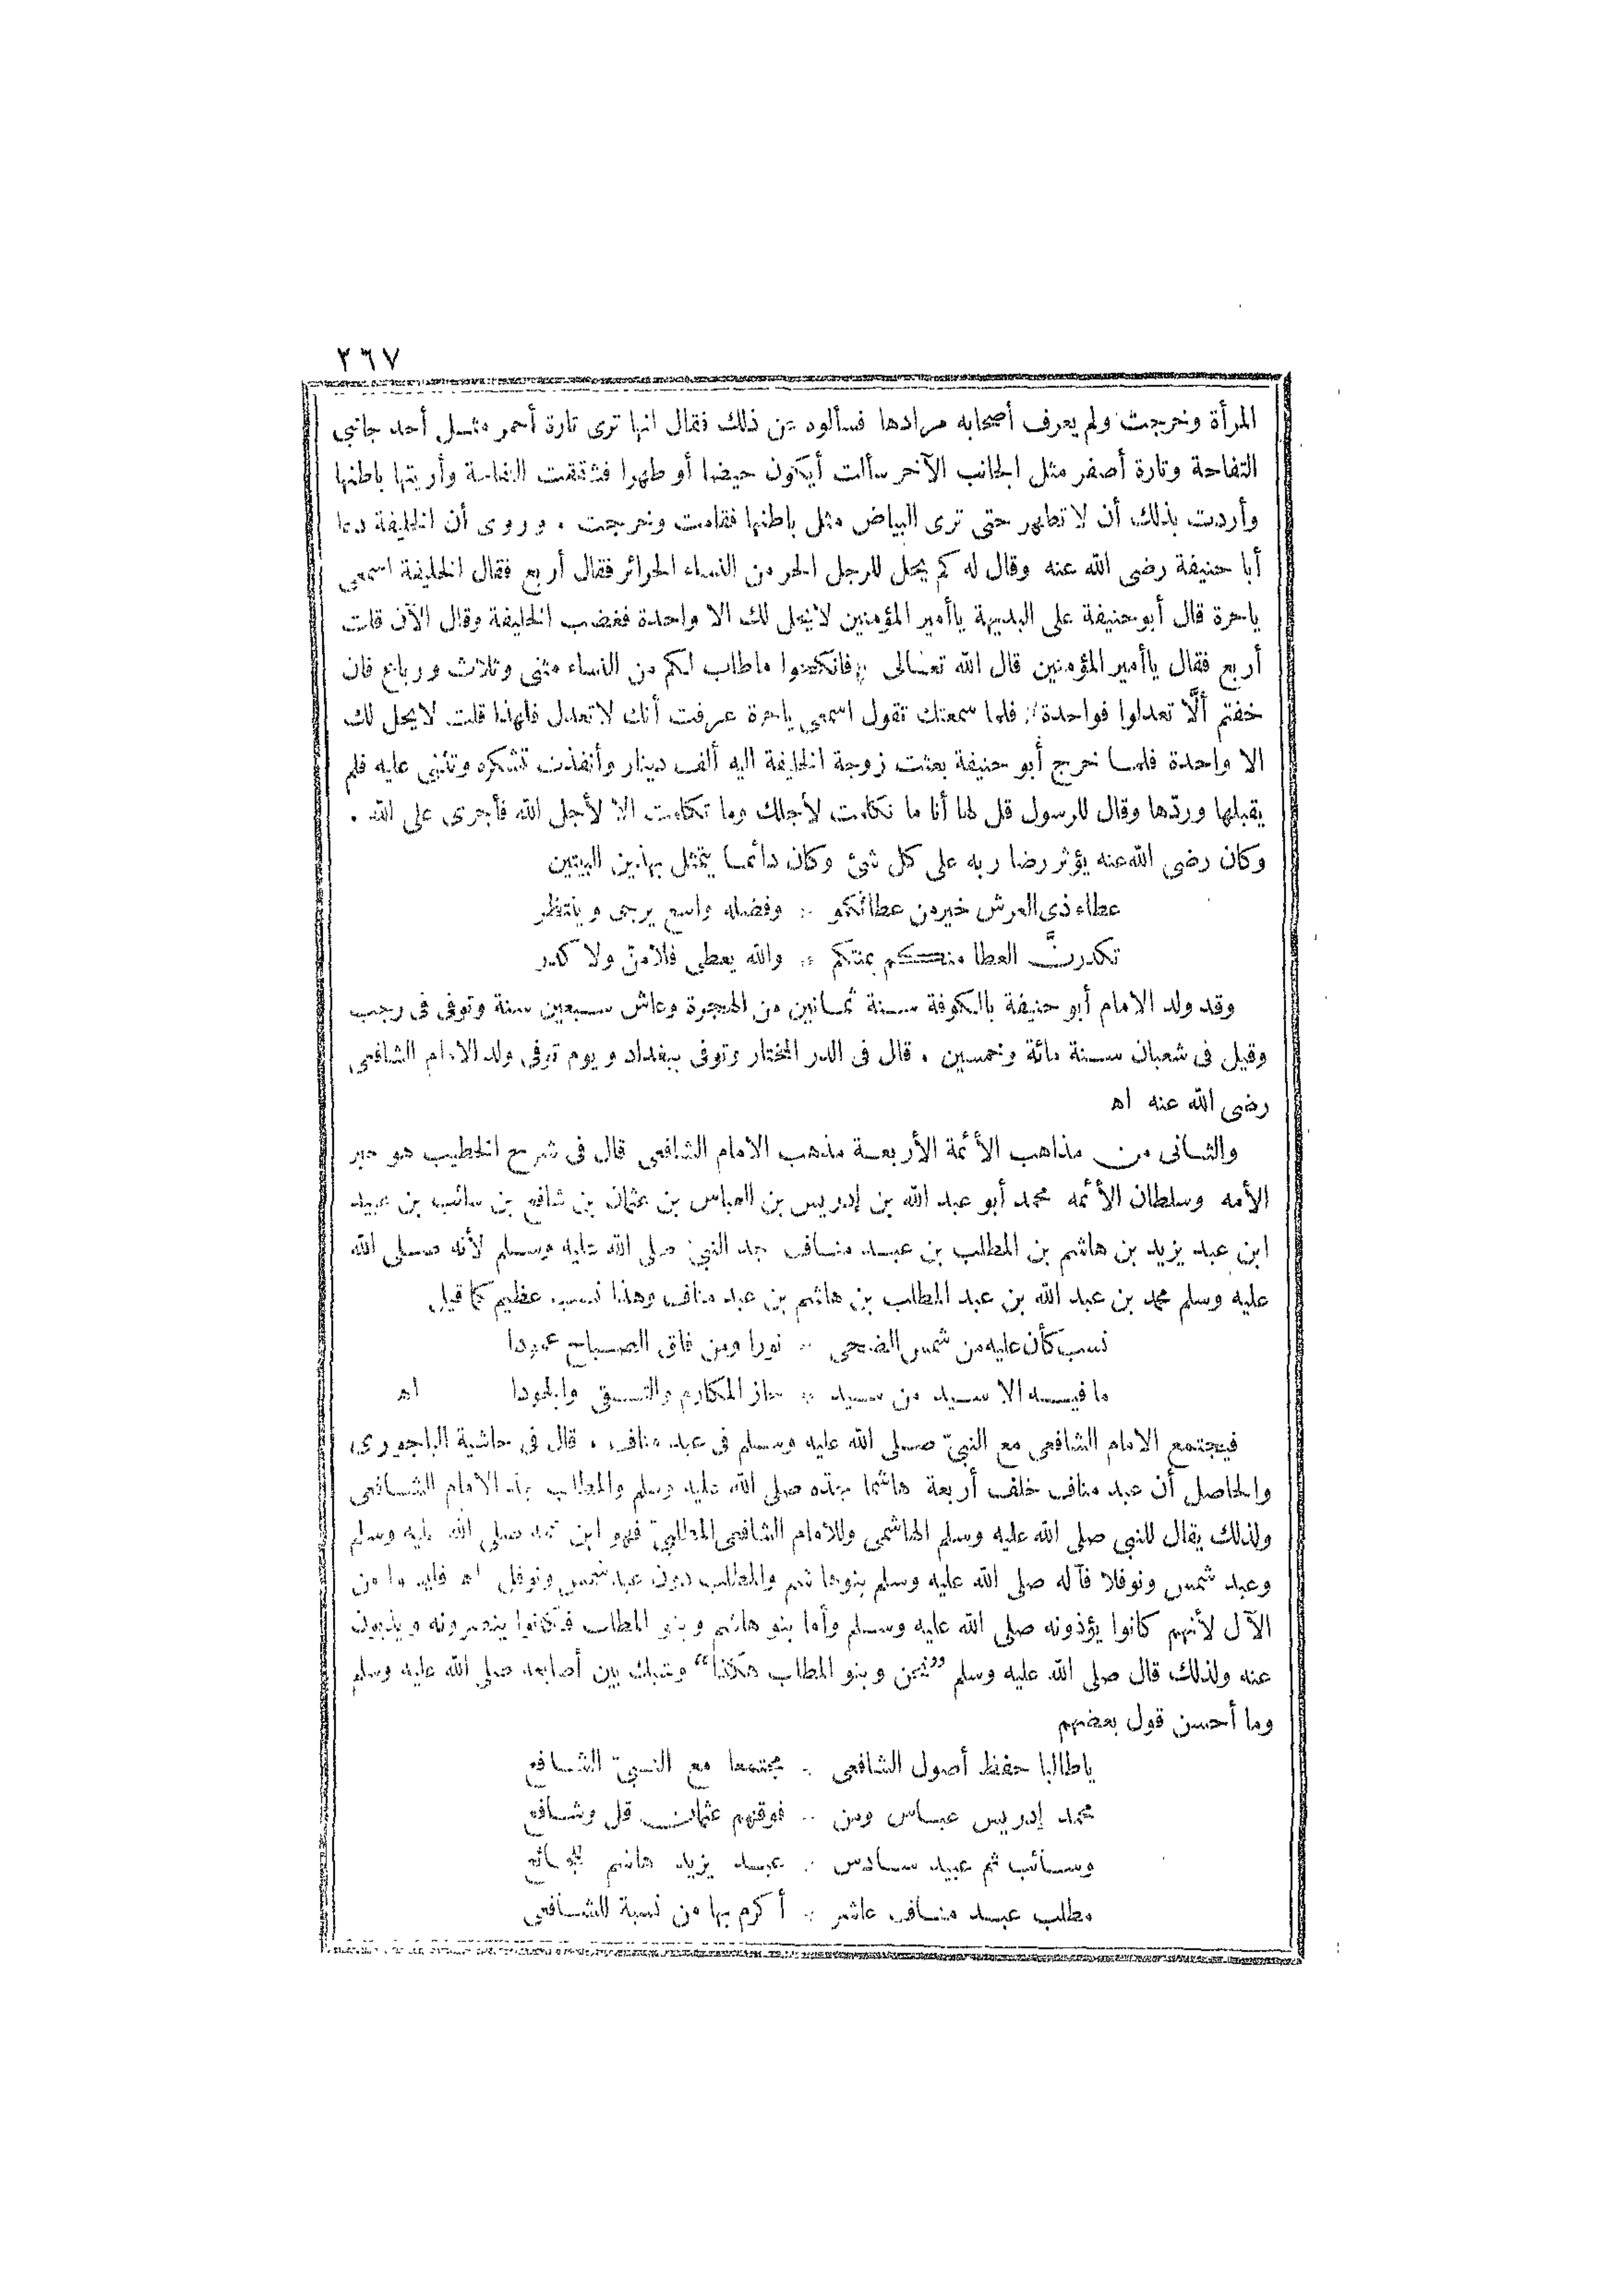 ٢٦٧
المرأة وخرجت ولم يعرف أصحابه مرادها فسألوه عن ذلك فقال انها ترى تارة أحمر مثل أحد جانبي
التفاحة وتارة أصفر مثل الجانب الآخر سألت أيكون حيضا أو طهرا فشققت التفاحة وأريتها باطنها
وأردت بذلك أن لا تطهر حتى ترى البياض مثل باطنها فقامت وخرجت . وروى أن الخليفة دعا
أبا حنيفة رضى الله عنه وقال له كم يحل للرجل الحر من النساء الحرائر فقال أربع فقال الخليفة اسمعى
ياحرة قال أبو حنيفة على البديهة ياأمير المؤمنين لايحل لك الا واحدة فغضب الخليفة وقال الآن قلت
أربع فقال ياأمير المؤمنين قال الله تعالى (فانكحوا ماطاب لكم من النساء مثنى وثلاث ورباع فان
خفتم ألَّا تعدلوا فواحدة) فلما سمعتك تقول اسمعى ياحرة عرفت أنك لاتعدل فلهذا قلت لايحل لك
الا واحدة فلما خرج أبو حنيفة بعثت زوجة الخليفة اليه ألف دينار وأنفذت تشكره وتثنى عليه فلم
يقبلها وردّها وقال للرسول قل لها أنا ما تكلمت لأجلك وما تكلمت الا لأجل الله فأجرى على الله .
وكان رضى الله عنه يؤثر رضا ربه على كل شئ وكان دائما يتمثل بهذين البيتين
عطاء ذى العرش خير من عطائكمو ∴ وفضله واسع يرجى وينتظر
تكدرنَّ العطا منكم بمنتكم ∴ والله يعطى فلا منّ ولا كدر
وقد ولد الامام أبو حنيفة بالكوفة سنة ثمانين من الهجرة وعاش سبعين سنة وتوفى فى رجب
وقيل فى شعبان سنة مائة وخمسين . قال فى الدر المختار وتوفى ببغداد ويوم توفى ولد الامام الشافعى
رضى الله عنه اه
والثانى من مذاهب الأئمة الأربعة مذهب الامام الشافعى قال فى شرح الخطيب هو حبر
الأمه وسلطان الأئمه محمد أبو عبد الله بن إدريس بن العباس بن عثمان بن شافع بن سائب بن عبيد
ابن عبد يزيد بن هاشم بن المطلب بن عبد مناف جد النبى صلى الله عليه وسلم لأنه صلى الله
عليه وسلم محمد بن عبد الله بن عبد المطلب بن هاشم بن عبد مناف وهذا نسب عظيم كما قيل
نسب كأن عليه من شمس الضحى ∴ نورا ومن فاق الصباح عمودا
ما فيه الا سيد من سيد ∴ حاز المكارم والتقى والجودا اه
فيجتمع الامام الشافعى مع النبىّ صلى الله عليه وسلم فى عبد مناف . قال فى حاشية الباجورى
والحاصل أن عبد مناف خلف أربعة هاشما جدّه صلى الله عليه وسلم والمطلب جد الامام الشافعى
ولذلك يقال للنبى صلى الله عليه وسلم الهاشمى وللامام الشافعى المطلبىّ فهو ابن عمه صلى الله عليه وسلم
وعبد شمس ونوفلا فآله صلى الله عليه وسلم بنو هاشم والمطلب دون عبد شمس ونوفل اه فليسا من
الآل لأنهم كانوا يؤذونه صلى الله عليه وسلم وأما بنو هاشم وبنو المطلب فكانوا ينصرونه ويذبون
عنه ولذلك قال صلى الله عليه وسلم ”نحن وبنو المطلب هكذا“ وشبك بين أصابعه صلى الله عليه وسلم
وما أحسن قول بعضهم
ياطالبا حفظ أصول الشافعى ∴ مجتمعا مع النبىّ الشافع
محمد إدريس عباس ومن ∴ فوقهم عثمان قل وشافع
وسائب ثم عبيد سادس ∴ عبد يزيد هاشم
مطلب عبد مناف عاشر ∴ أكرم بها من نسبة للشافعى